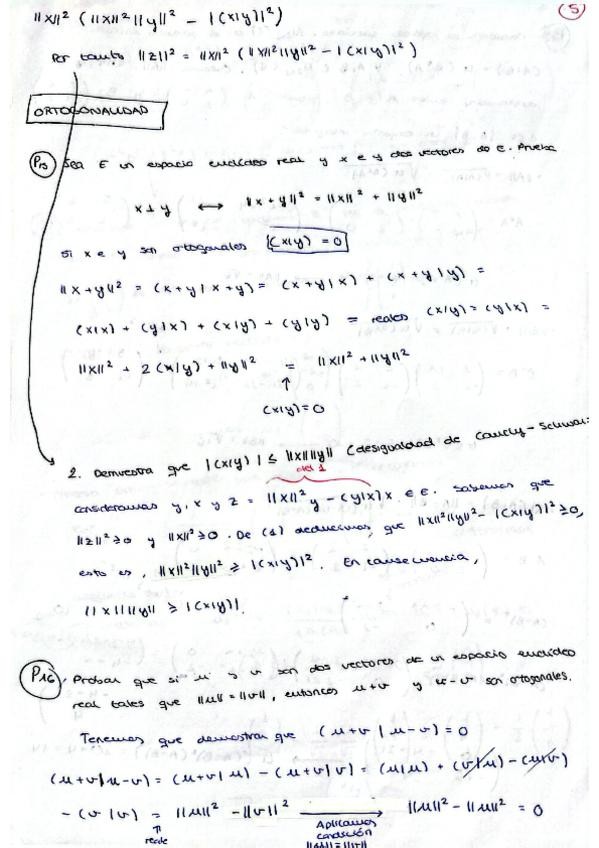 ||x||² (||x||² ||y||² - |(x|y)|²)
5
Por tanto ||z||² = ||x||² (||x||²||y||² - |(x|y)|²)
ORTOGONALIDAD
P15 Sea E un espacio euclídeo real y x e y dos vectores de E. Prueba
x ⊥ y ↔ ||x+y||² = ||x||² + ||y||²
Si x e y son ortogonales (x|y) = 0
||x+y||² = (x+y|x+y) = (x+y|x) + (x+y|y) =
(x|x) + (y|x) + (x|y) + (y|y) = reales (x|y) = (y|x) =
||x||² + 2(x|y) + ||y||² = ||x||² + ||y||²
↑
(x|y)=0
2. Demuestra que |(x|y)| ≤ ||x|| ||y|| (desigualdad de Cauchy-Schwar
del 1
consideramos y, x y z = ||x||² y - (y|x) x ∈ E. Sabemos que
||z||² ≥ 0 y ||x||² ≥ 0. De (1) deducimos, que ||x||²||y||² - |(x|y)|² ≥ 0,
esto es, ||x||²||y||² ≥ |(x|y)|². En consecuencia,
||x|| ||y|| ≥ |(x|y)|.
P16 Probar que si u y v son dos vectores de un espacio euclídeo
real tales que ||u|| = ||v||, entonces u+v y u-v son ortogonales.
Tenemos que demostrar que (u+v|u-v) = 0
(u+v|u-v) = (u+v|u) - (u+v|v) = (u|u) + (v|u) - (u|v)
- (v|v) = ||u||² - ||v||² → ||u||² - ||u||² = 0
↑ Aplicamos
reale condición
||u|| = ||v||